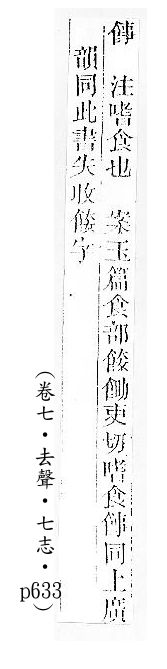 注嗜食也 案玉篇食部鋤吏切嗜食同上廣
韻同此書失收字
(卷七・去聲・七志・p633)